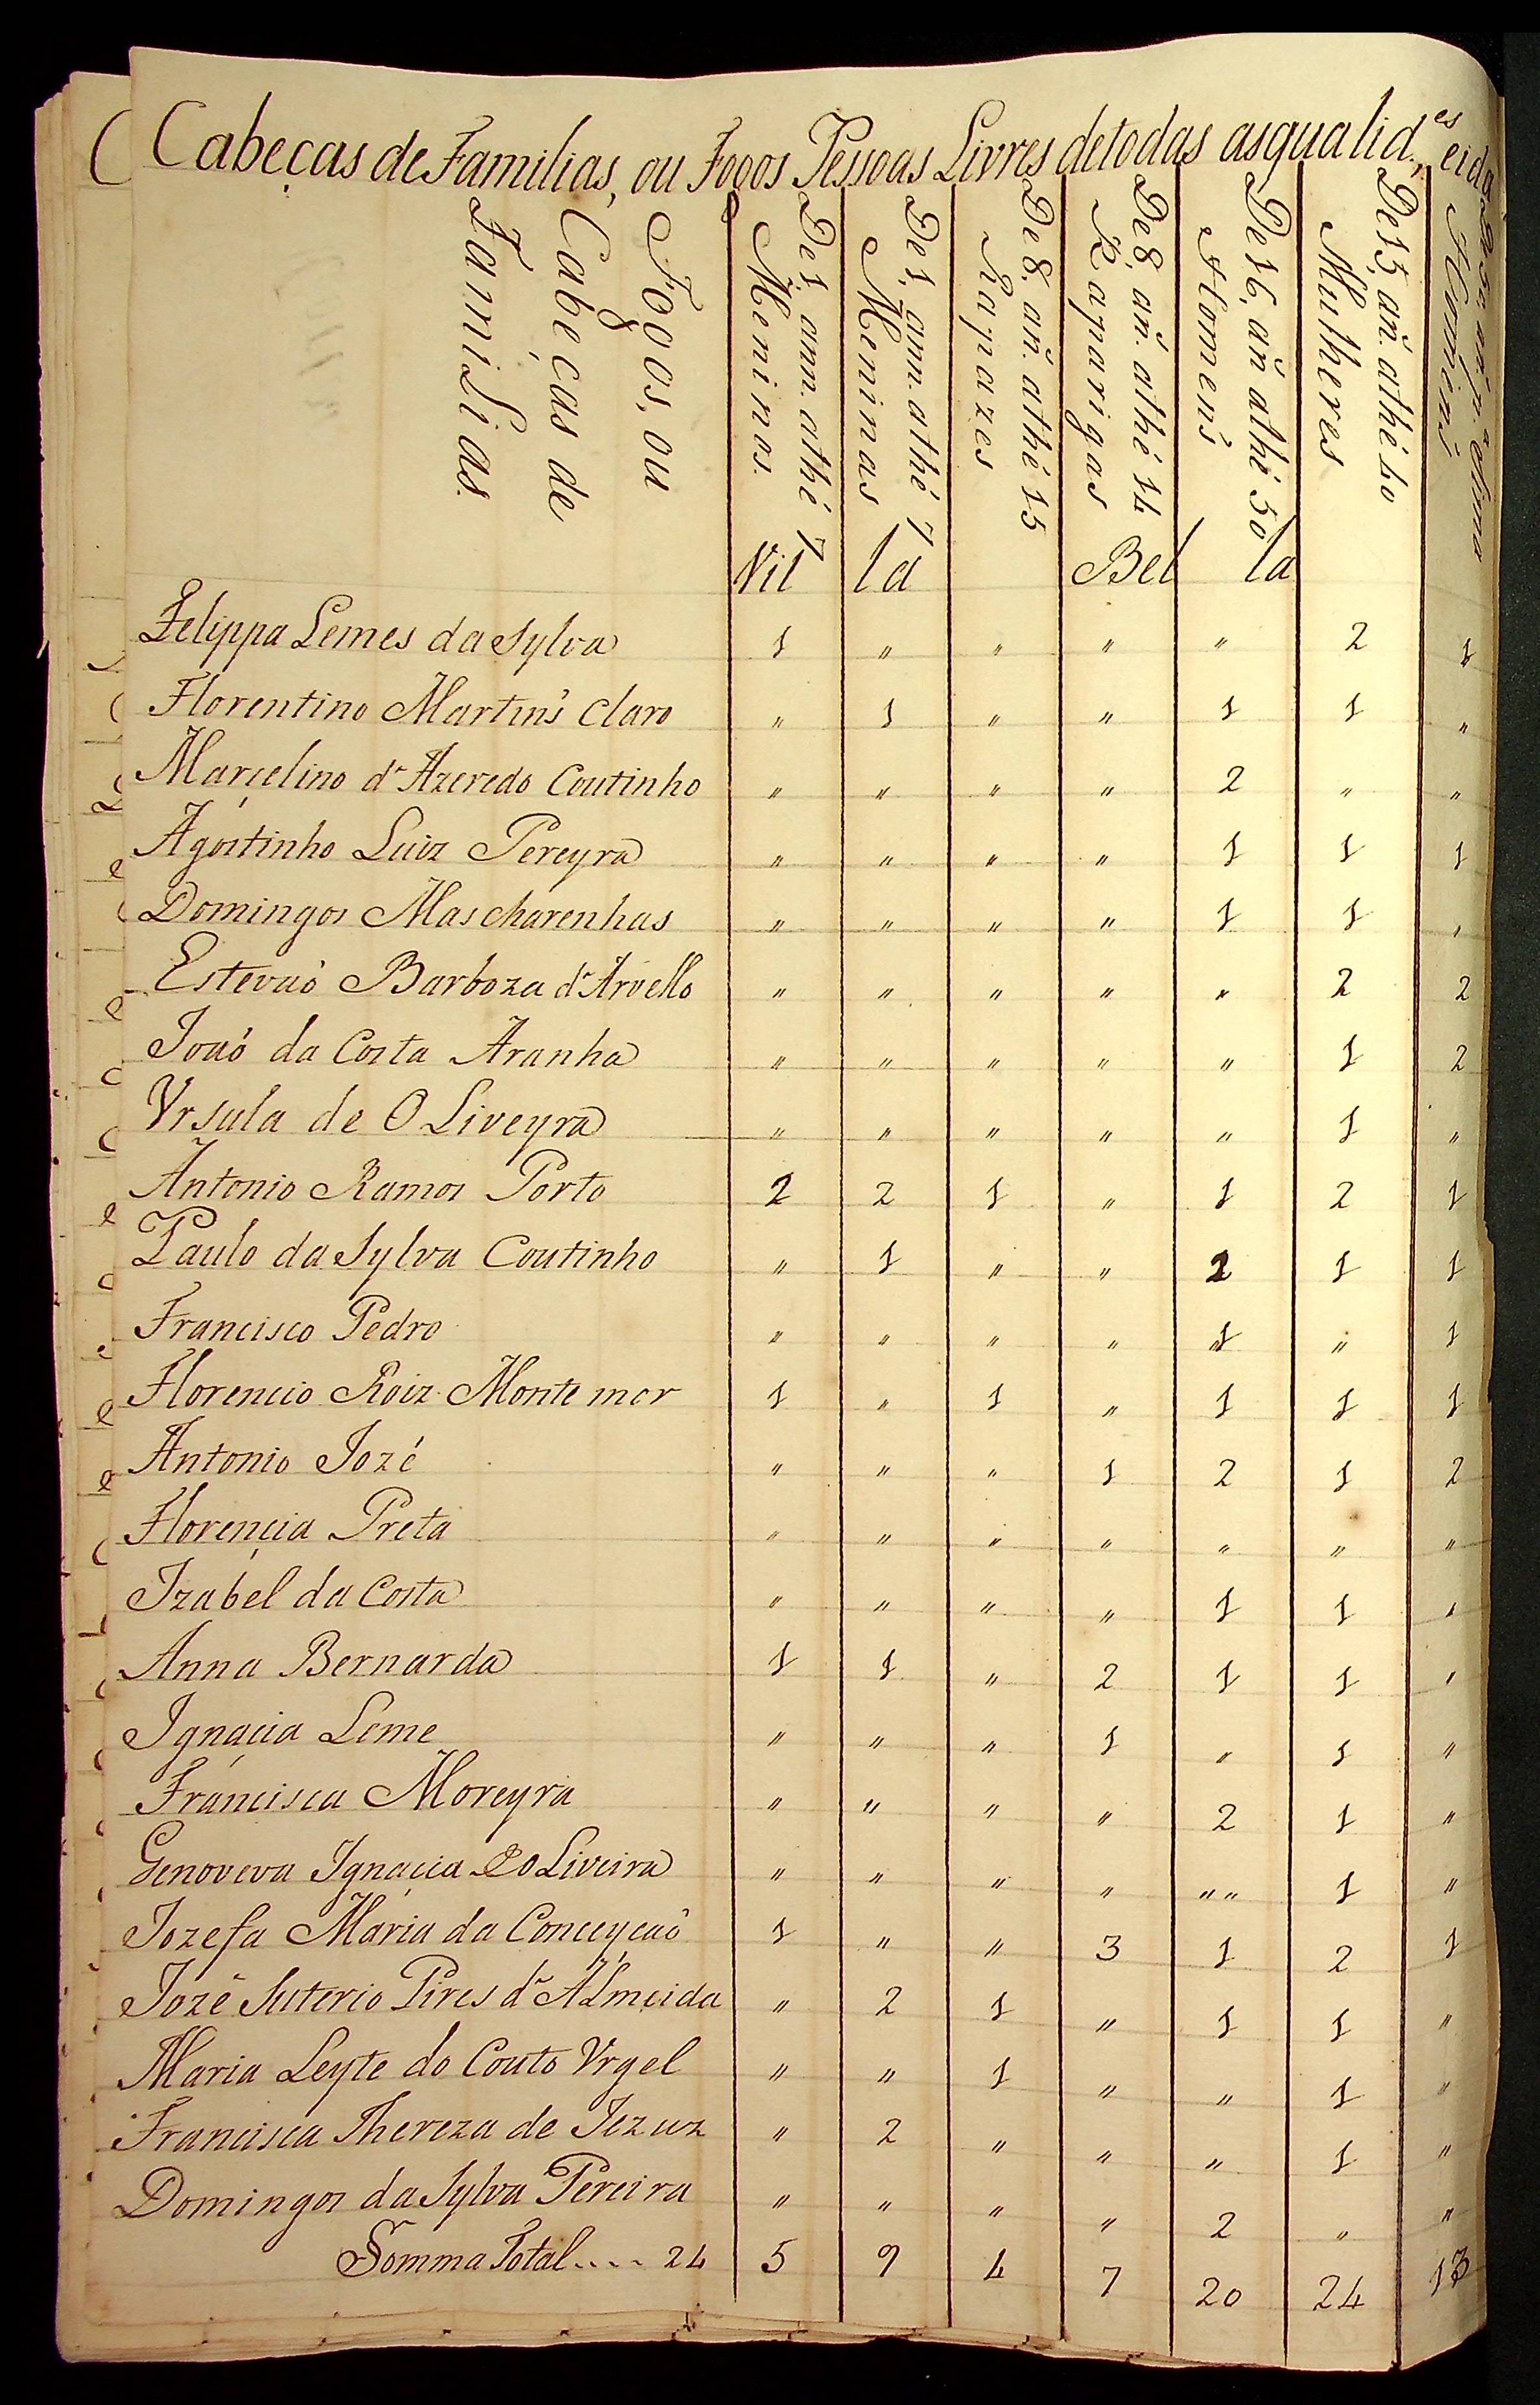 Cabeças de Familias, ou Fogos Pessoas Livres detodas asqualid.es eida
Fogos, ou Cabeças de Familias
De 1, ann. athé 7 Meninos.
De 1, ann. athé 7 Meninas
De 8, añ. athé 15 Rapazes
De 8, añ. athé 14 Raparigas
De 16, añ athé 50 Homens
De 15, añ. athé 40 Mulheres
Homins
Vil la Bel la
Felippa Lemes da Sylva 1 " " " " 2 1
Florentino Martins Claro " 1 " " 1 1 "
Marçelino d'Azeredo Coutinho " " " " 2 " "
Agostinho Luiz Pereyra " " " " 1 1 1
Domingos Mascharenhas " " " " 1 1 "
Estevaõ Barboza d'Arvello " " " " " 2 2
Joaõ da Costa Aranha " " " " " 1 2
Vrsula de OLiveyra " " " " " 1 "
Antonio Ramos Porto 2 2 1 " 1 2 1
Paulo da Sylva Coutinho " 1 " " 2 1 1
Francisco Pedro " " " " 1 " 1
Florencio Roiz Monte mor 1 " 1 " 1 1 1
Antonio Jozé " " " 1 2 1 2
Florençia Preta " " " " " " "
Izabel da Costa " " " " 1 1 "
Anna Bernarda 1 1 " 2 1 1 "
Ignaçia Leme " " " 1 " 1 "
Francisca Moreyra " " " " 2 1 "
Genoveva Ignaçia de OLiveira " " " " " " 1 "
Jozefa Maria da Conceyçaõ 1 " " 3 1 2 1
Jozé Suterio Pires d'ALmeida " 2 1 " 1 1 "
Maria Leyte do Couto Vrgel " " 1 " " 1 "
Francisca Thereza de Jezuz " 2 " " " 1 "
Domingos da Sylva Pereira " " " " 2 " "
Somma Total.... 24 5 9 4 7 20 24 13